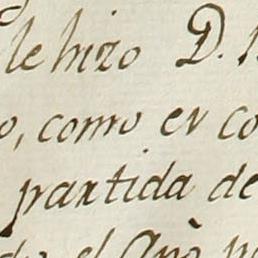 le hizo D.
o, como ex co
partida de
el Año p